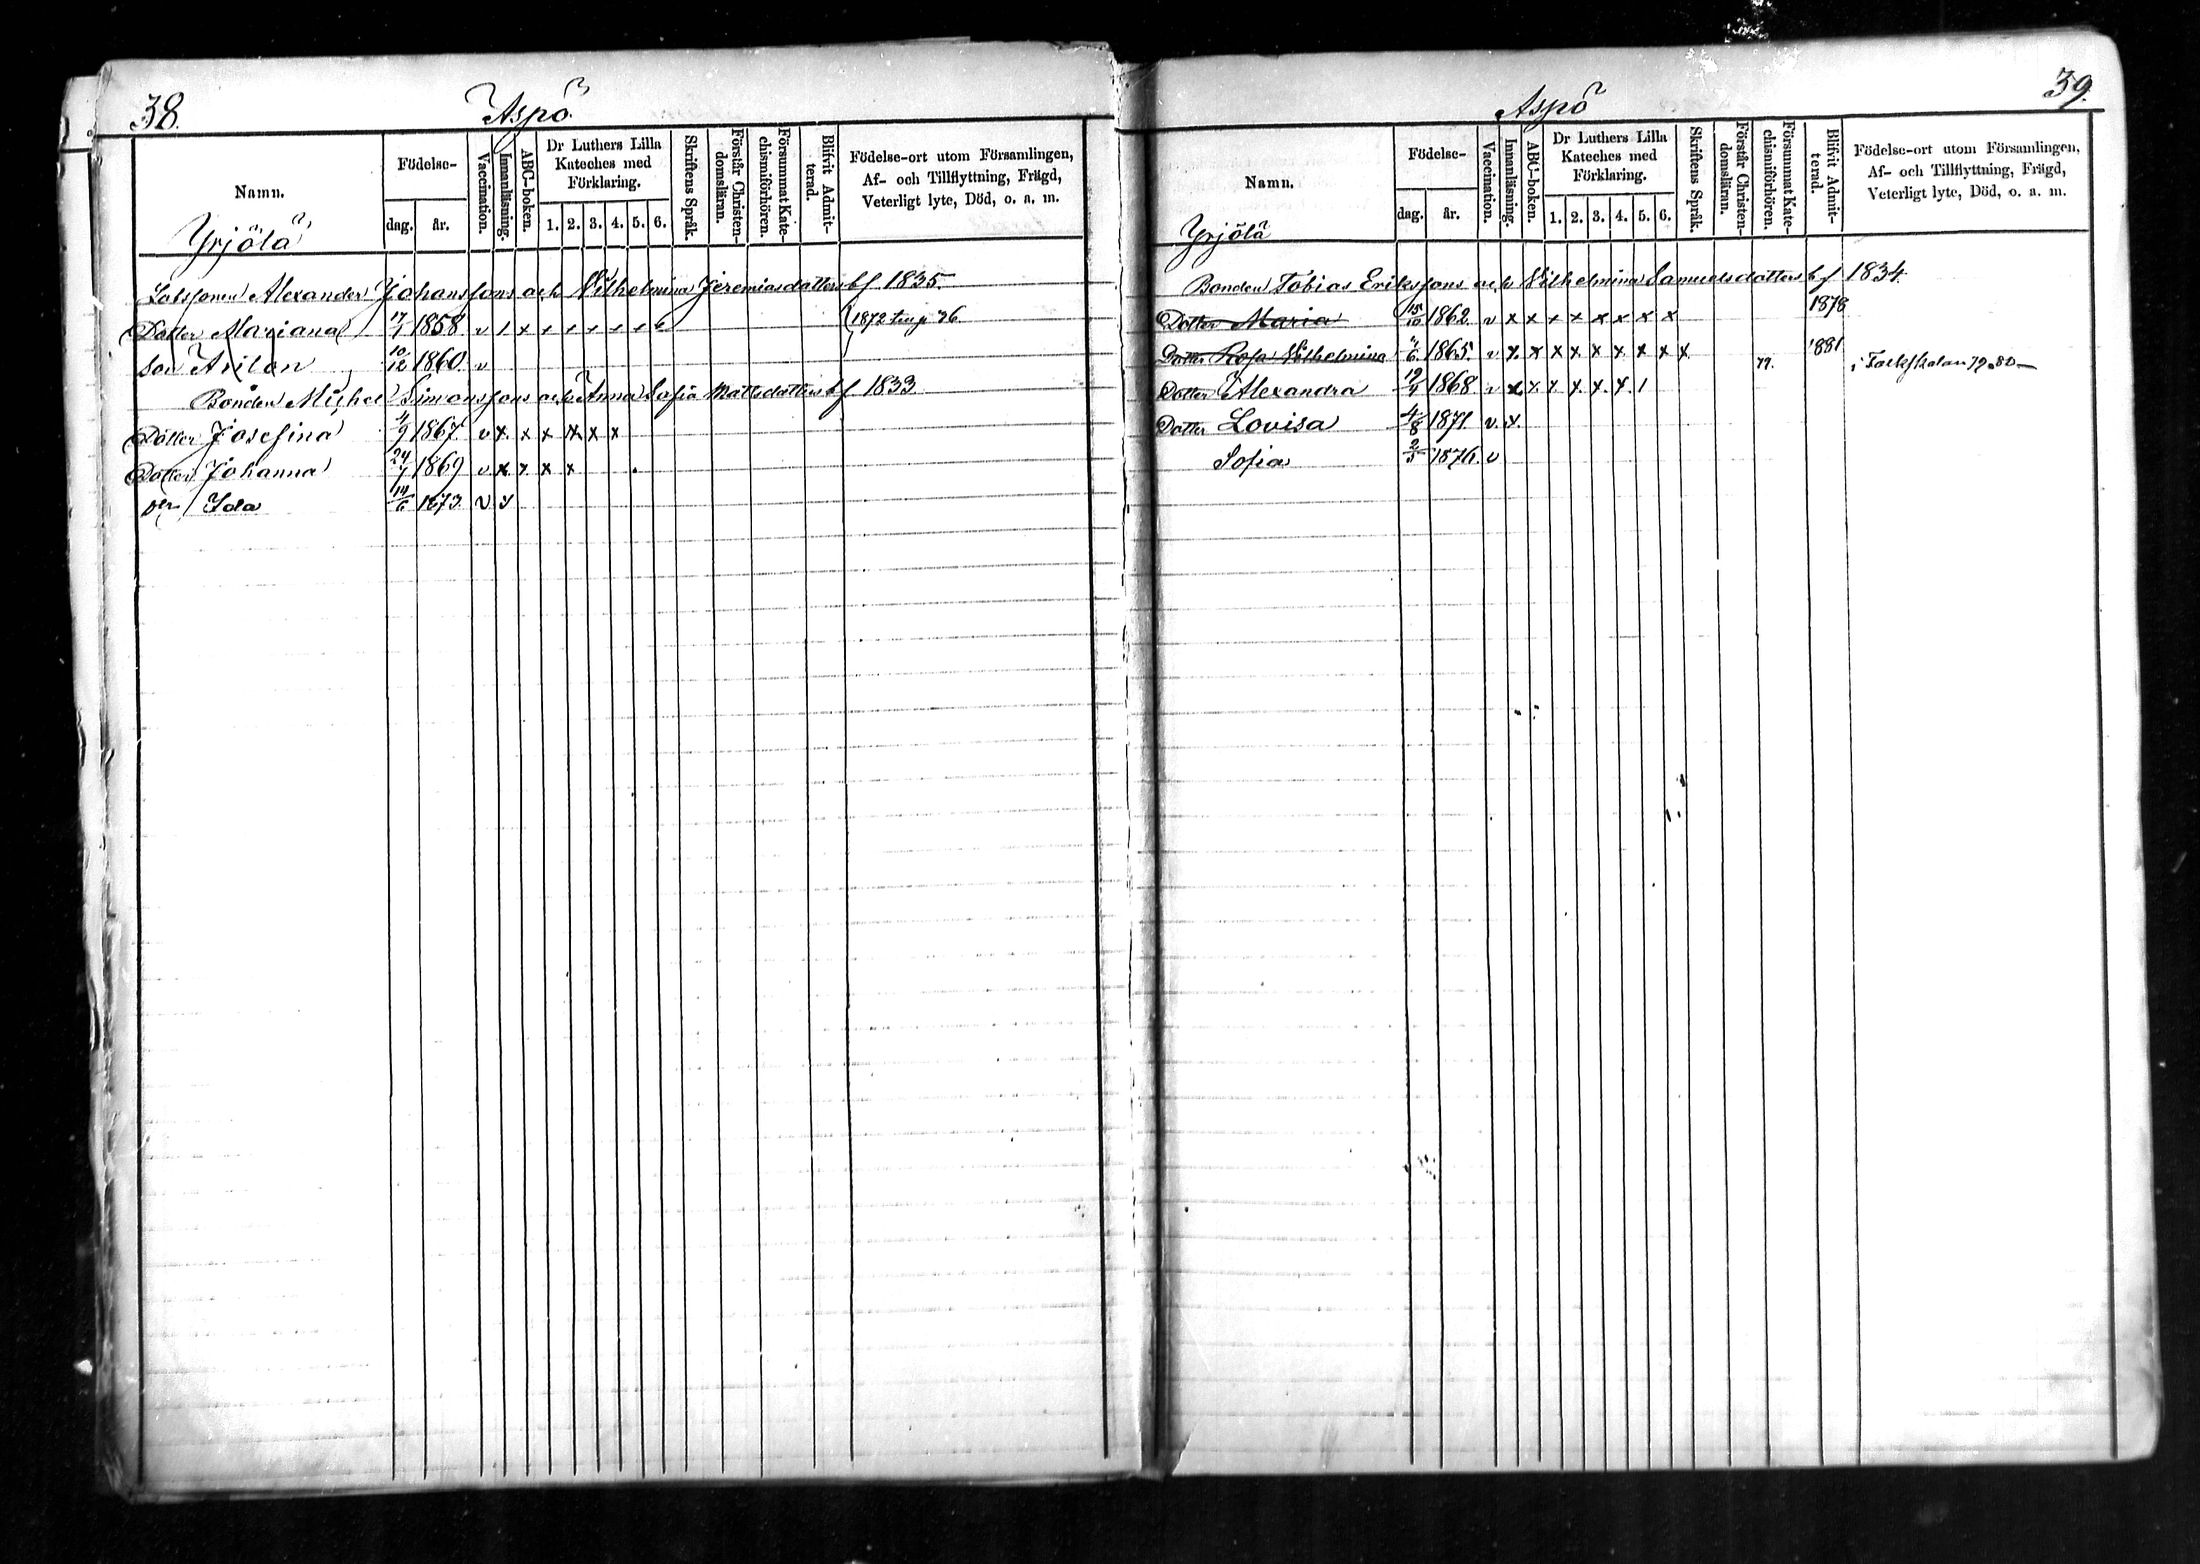 38.
Aspö
Namn.
Födelse-
dag.
år.
Vaccination.
Innanläsning.
ABC-boken.
Dr Luthers Lilla Kateches med Förklaring.
1. 2. 3. 4. 5. 6.
Skriftens Språk.
Förstår Christendomsläran.
Försummat Katechismiförhören.
Blifvit Admitterad.
Födelse-ort utom Församlingen,
Af- och Tillflyttning, Frägd,
Veterligt lyte, Död, o. a. m.
Yrjölä
Alexander Johanssons och Wilhelmina Jeremiasdotters bf 1835.
Dotter Mariana 17/1 1858 v / x / / / / / / 1872 36
Son 10/12 1860 v
Bonden Michel Simonssons och Anna Sofia Mattsdotters bf 1833
Dotter Josefina 4/9 1867 v x x x x x x
Dotter Johanna 24/7 1869 v x x x x
Ida 14/6 1873 v
39.
Aspö
Namn.
Födelse-
dag.
år.
Vaccination.
Innanläsning.
ABC-boken.
Dr Luthers Lilla Kateches med Förklaring.
1. 2. 3. 4. 5. 6.
Skriftens Språk.
Förstår Christendomsläran.
Försummat Katechismiförhören.
Blifvit Admitterad.
Födelse-ort utom Församlingen,
Af- och Tillflyttning, Frägd,
Veterligt lyte, Död, o. a. m.
Yrjölä
Bonden Tobias Erikssons och Wilhelmina Samuelsdotters bf 1834.
Dotter Maria 15/10 1862 v x x x x x x x x 1878
Dotter Rosa Wilhelmina 1865. v x x x x x x x x x 1881
Dotter Alexandra 1868 v x x x x x x / 79. i Folkskolan 79-80-
Dotter Lovisa 4/8 1871 v x
Sofia 2/5 1876. v